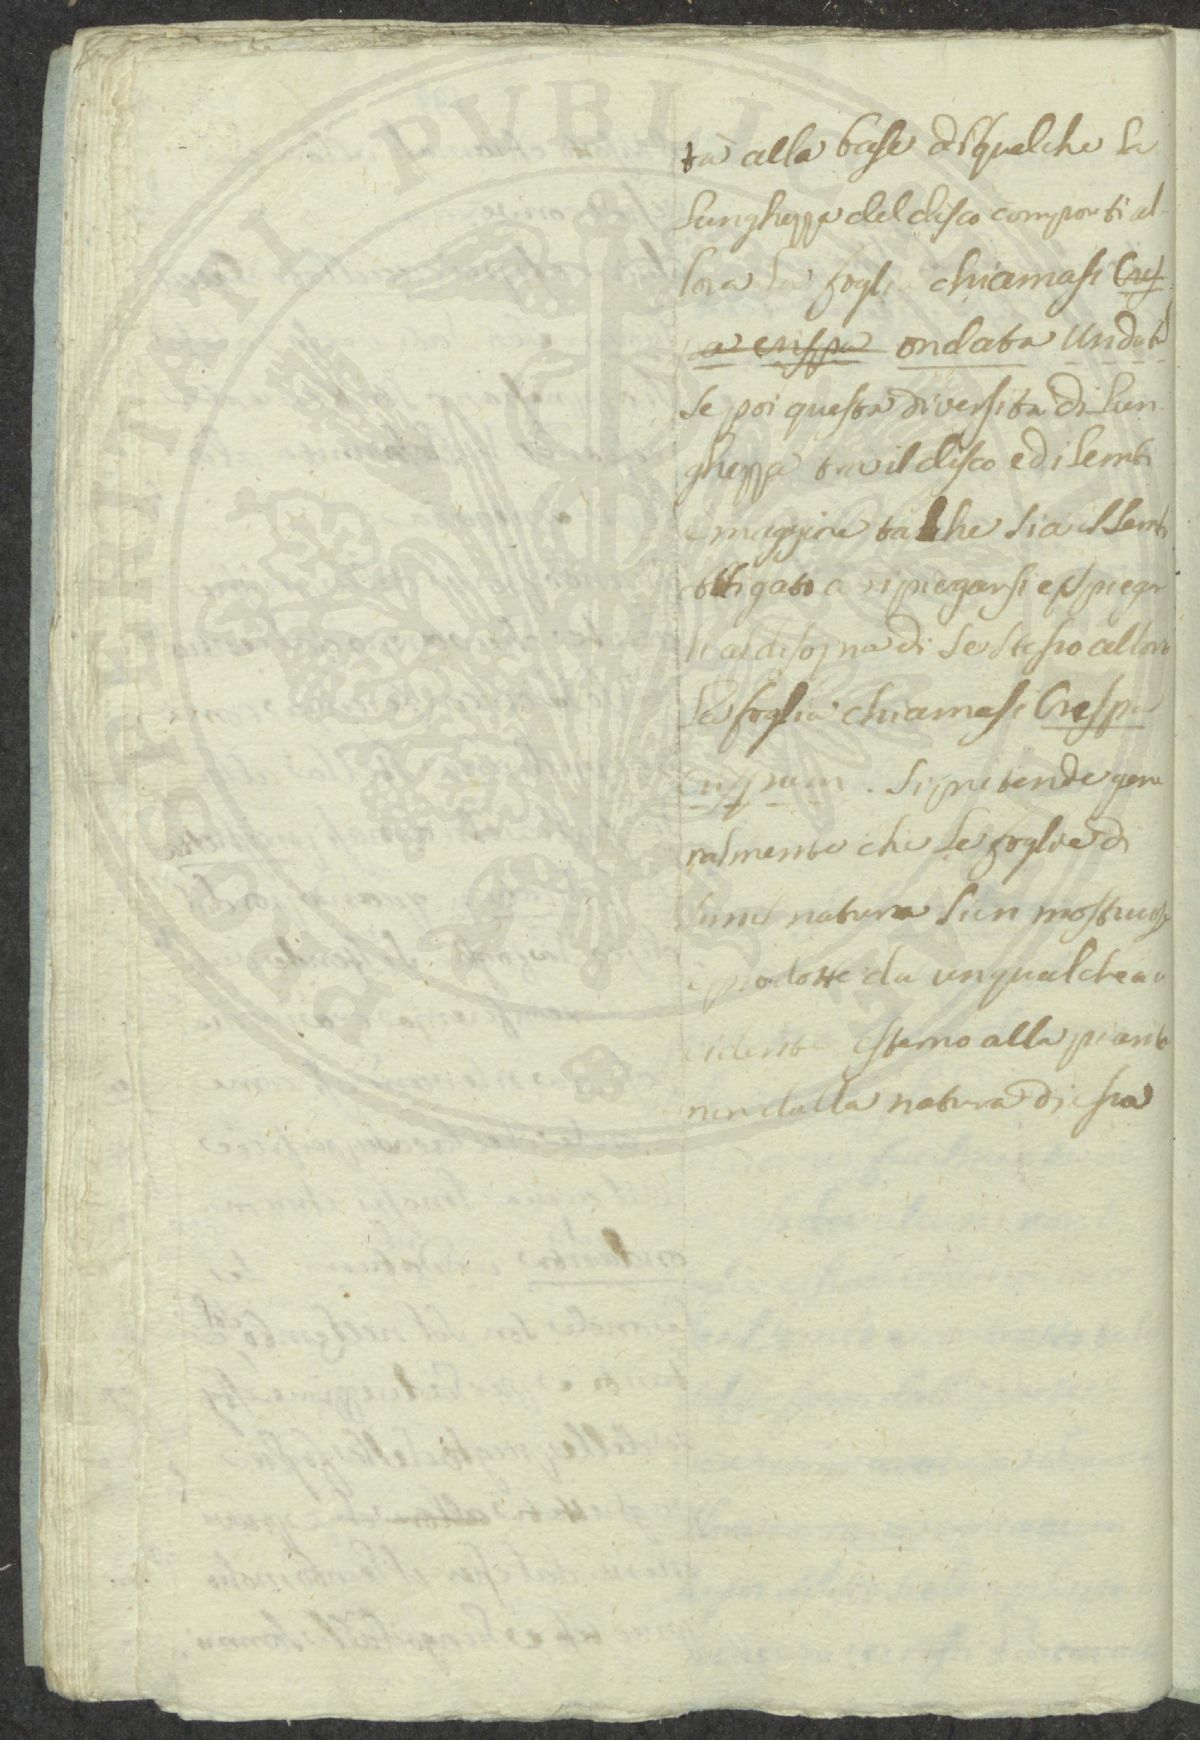 ta alla base di quelche la
lunghezza del disco comporti al-
lora la foglia chiamasi Cres
pa crispa ondata Undat
se poi questa diversita di lun
ghezza tra il disco ed i lembi
e maggiore talche sia il lemb
obbligato a ripiegarsi e spiegar
si al disopra di se stesso allora
la foglia chiamasi Crespa
Crispum. Si pretende gene
ralmente che le foglie di
simil natura sien mostruose
e prodotte da un qualche ac
cidente esterno alla pianta
non dalla natura di essa